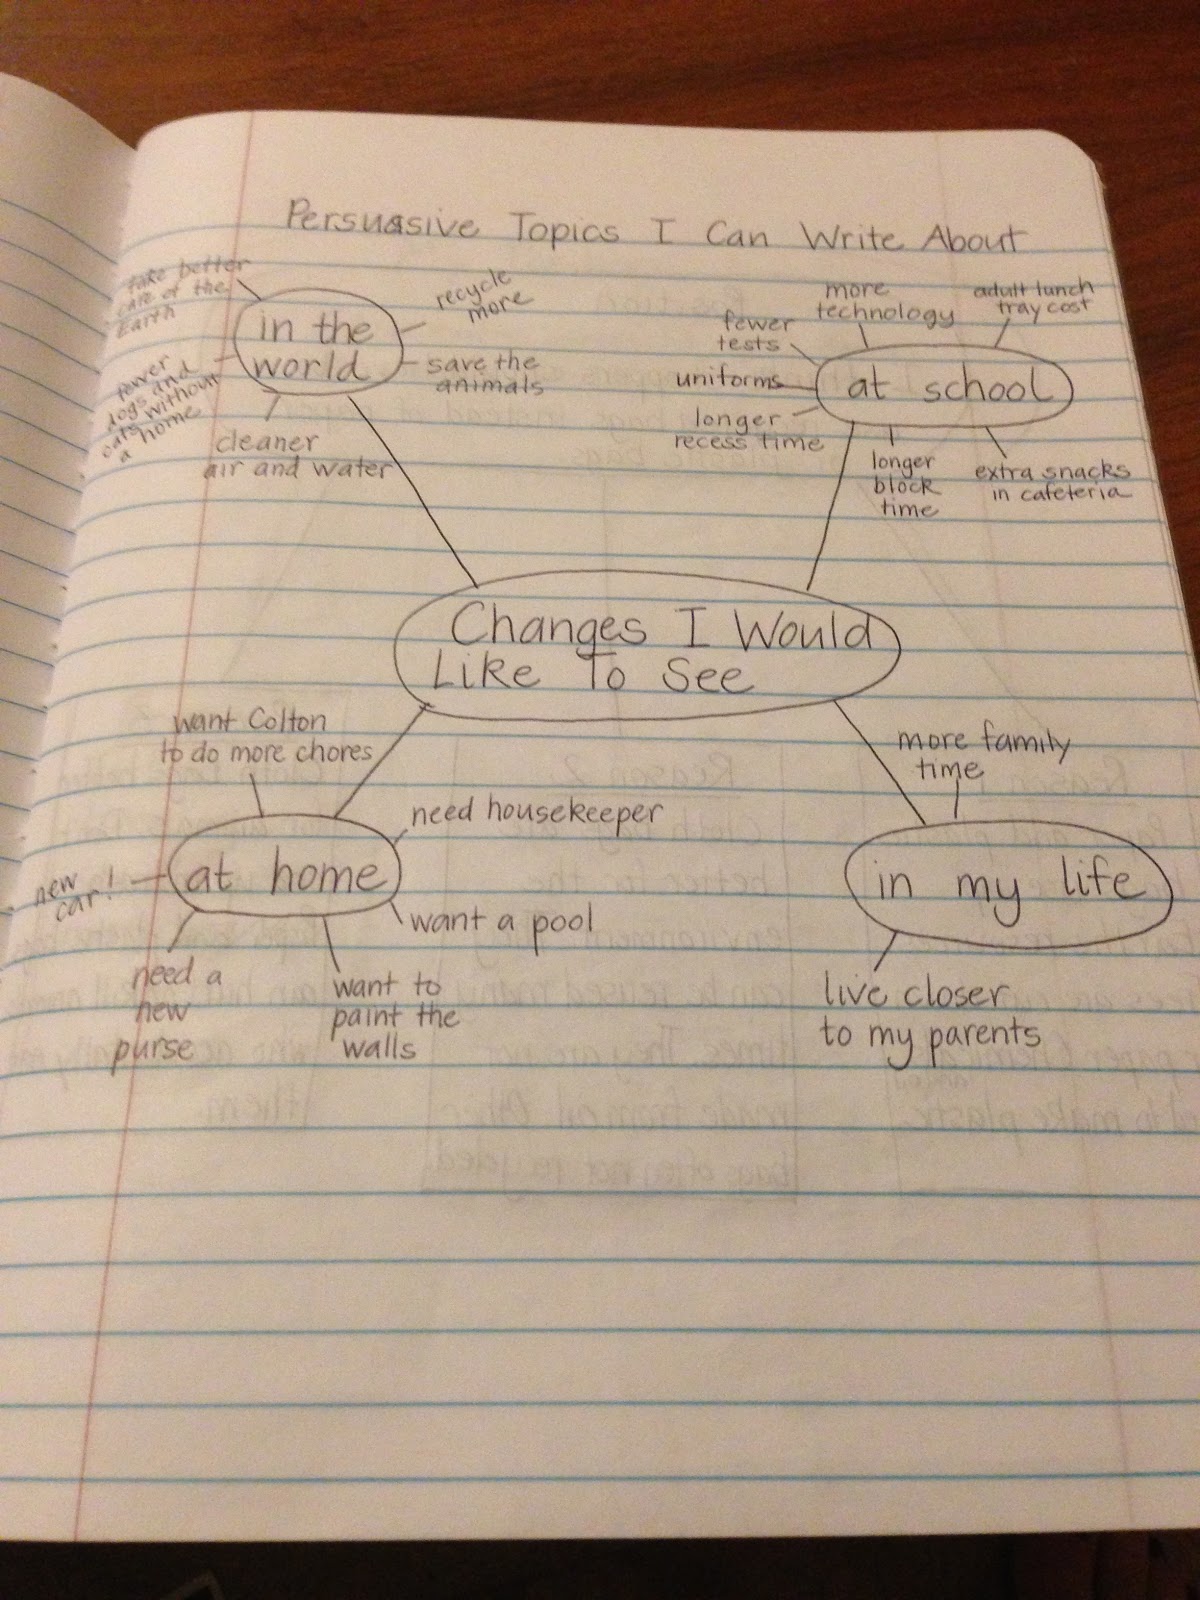 Persuasive Topics I Can Write About
take better
care of the
Earth
in the
world
recycle
more
save the
animals
fewer
dogs and
cats without
a home
cleaner
air and water
more
technology
adult lunch
tray cost
fewer
tests
uniforms
at school
longer
recess time
longer
block
time
extra snacks
in cafeteria
Changes I Would
Like To See
want Colton
to do more chores
need housekeeper
new
car!
at home
want a pool
need a
new
purse
want to
paint the
walls
more family
time
in my life
live closer
to my parents